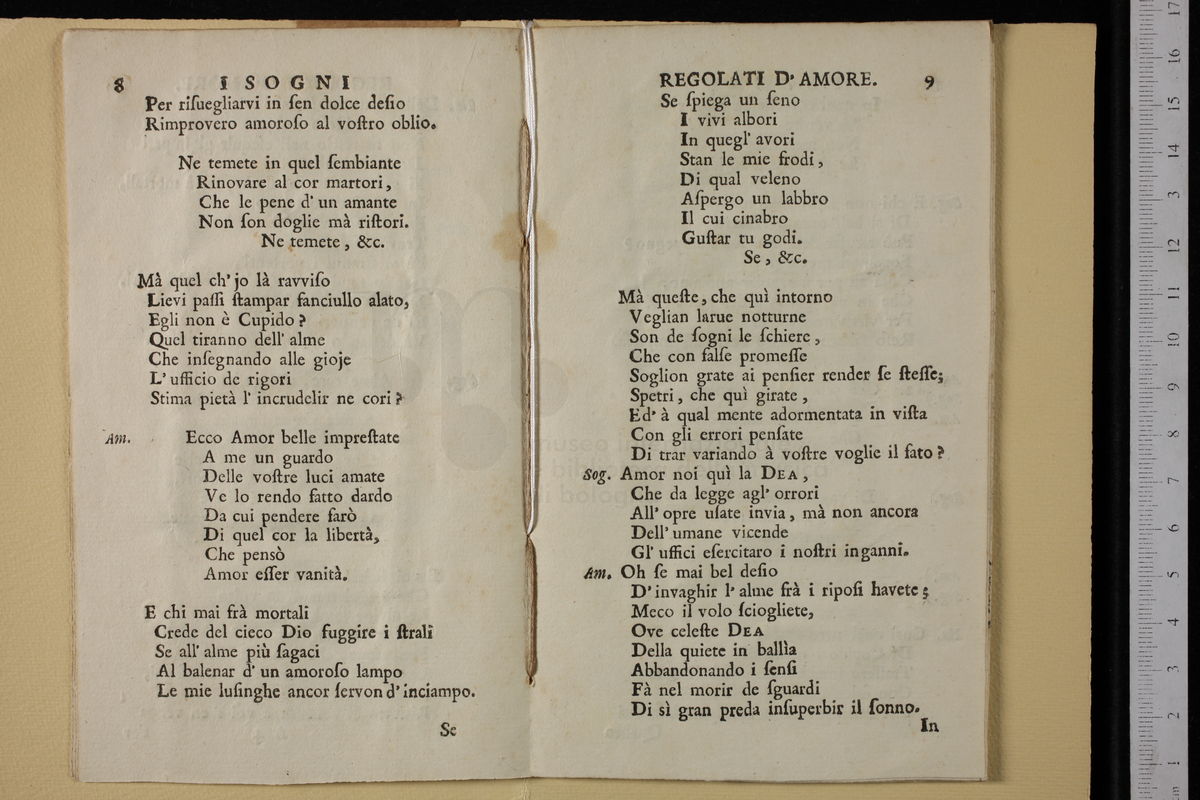 8 I SOGNI
Per risuegliarvi in sen dolce desio
Rimprovero amoroso al vostro oblio.
Ne temete in quel sembiante
Rinovare al cor martori,
Che le pene d' un amante
Non son doglie mà ristori.
Ne temete, &c.
Mà quel ch' jo là ravviso
Lievi passi stampar fanciullo alato,
Egli non è Cupido?
Quel tiranno dell' alme
Che insegnando alle gioje
L' ufficio de rigori
Stima pietà l' incrudelir ne cori?
Am. Ecco Amor belle imprestate
A me un guardo
Delle vostre luci amate
Ve lo rendo fatto dardo
Da cui pendere farò
Di quel cor la libertà,
Che pensò
Amor esser vanità.
E chi mai frà mortali
Crede del cieco Dio fuggire i strali
Se all' alme più sagaci
Al balenar d' un amoroso lampo
Le mie lusinghe ancor servon d' inciampo.
Se
REGOLATI D' AMORE. 9
Se spiega un seno
I vivi albori
In quegl' avori
Stan le mie frodi,
Di qual veleno
Aspergo un labbro
Il cui cinabro
Gustar tu godi.
Se, &c.
Mà queste, che quì intorno
Veglian larue notturne
Son de sogni le schiere,
Che con false promesse
Soglion grate ai pensier render se stesse;
Spetri, che quì girate,
Ed' à qual mente adormentata in vista
Con gli errori pensate
Di trar variando à vostre voglie il fato?
Sog. Amor noi quì la DEA,
Che da legge agl' orrori
All' opre usate invia, mà non ancora
Dell' umane vicende
Gl' uffici esercitaro i nostri inganni.
Am. Oh se mai bel desio
D' invaghir l' alme frà i riposi havete;
Meco il volo sciogliete,
Ove celeste DEA
Della quiete in ballìa
Abbandonando i sensi
Fà nel morir de sguardi
Di sì gran preda insuperbir il sonno.
In